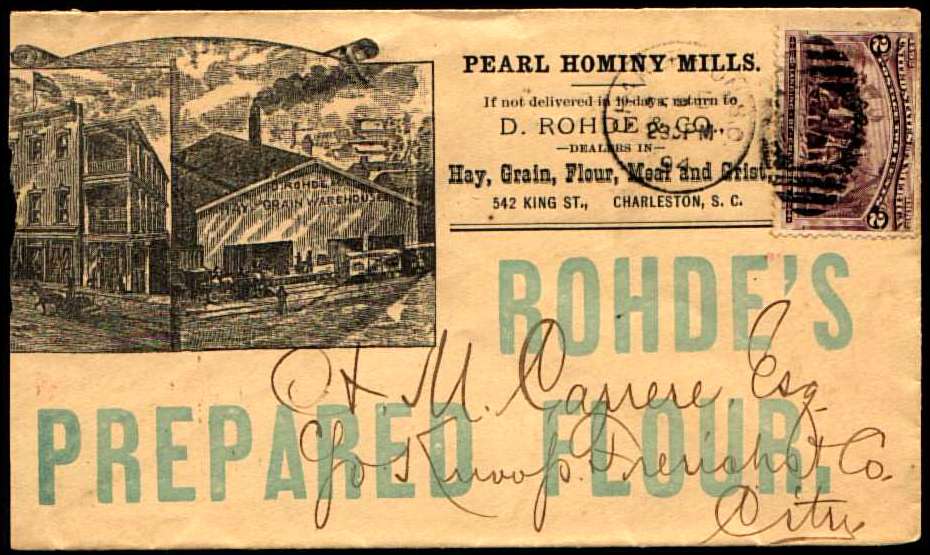 PEARL HOMINY MILLS.
If not delivered in 10 days, return to
D. ROHDE & CO.,
—DEALERS IN—
Hay, Grain, Flour, Meal and Grist,
542 KING ST., CHARLESTON, S. C.
23. PM
94
2
2
D. ROHDE
GRAIN WAREHOUSE
ROHDE'S
PREPARED FLOUR.
M. Carrere, Esq.
Co.
City